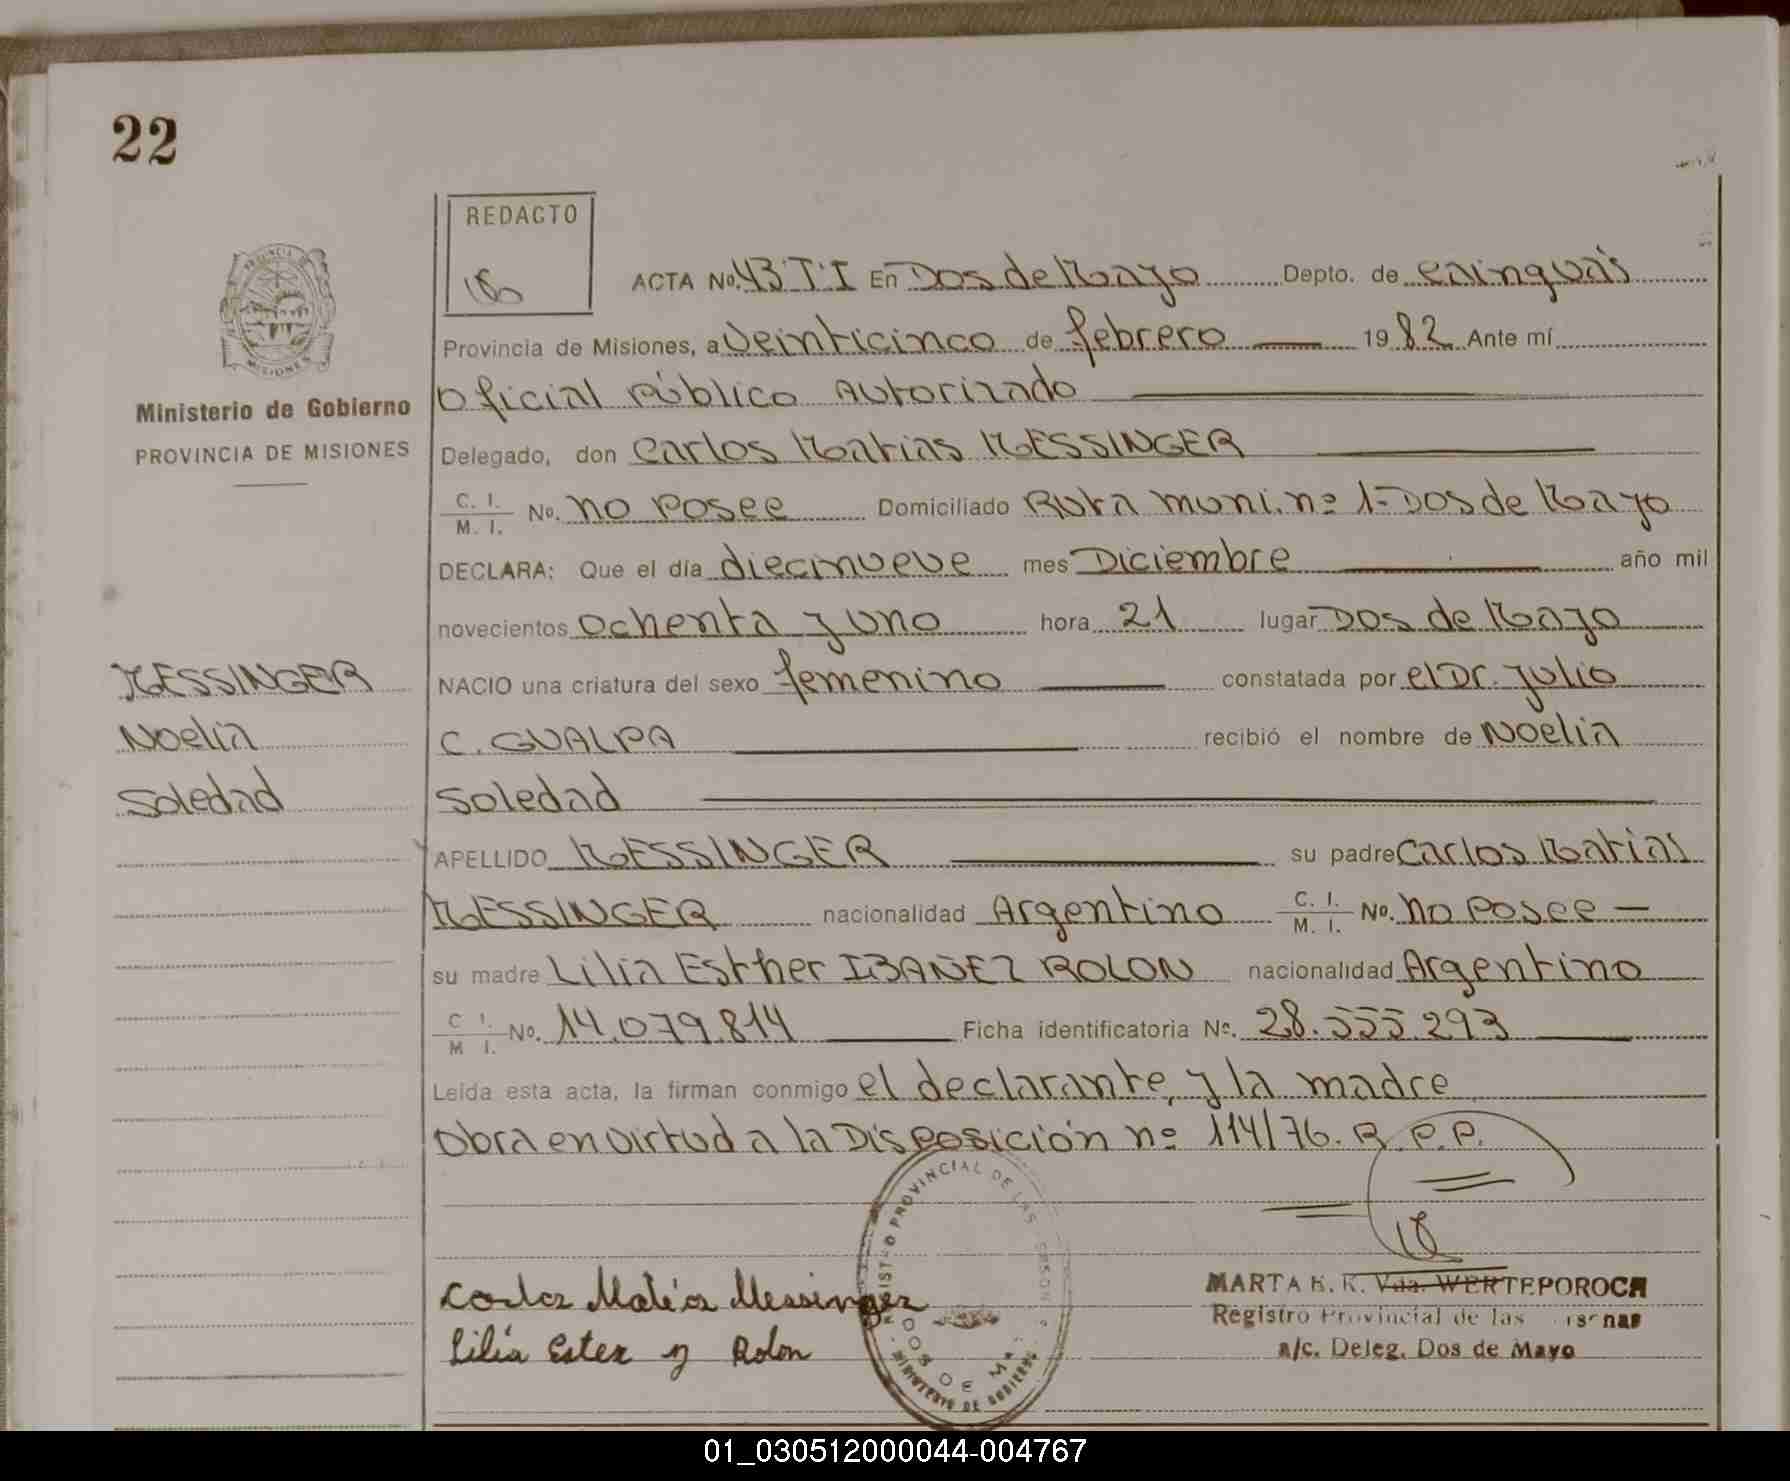 22
REDACTO
ACTA No. 43 T I En Dos de Mayo Depto. de Cainguás
Provincia de Misiones, a veinticinco de febrero 1982 Ante mí
Oficial Público Autorizado
Ministerio de Gobierno
PROVINCIA DE MISIONES
Delegado, don Carlos Matias MESSINGER
C. I. / M. I. No. no posee Domiciliado Ruta muni. nº 1-Dos de Mayo
DECLARA: Que el día diecinueve mes Diciembre año mil
novecientos ochenta y uno hora 21 lugar Dos de Mayo
MESSINGER
Noelia
Soledad
NACIO una criatura del sexo femenino constatada por el Dr. Julio
C. GUALPA recibió el nombre de Noelia
Soledad
APELLIDO MESSINGER su padre Carlos Matias
MESSINGER nacionalidad Argentino C. I. / M. I. No. no posee
su madre Lilia Esther IBAÑEZ ROLON nacionalidad Argentino
C I. / M I. No. 14.079.814 Ficha identificatoria No. 28.555.293
Leída esta acta, la firman conmigo el declarante, y la madre
Obra en virtud a la Disposición nº 114/76. R. P.P.
Carlos Matías Messinger
Lilia Ester y Rolon
MARTA K. K. Vda. WERTEPOROCH
Registro Provincial de las
a/c. Deleg. Dos de Mayo
PROVINCIAL DE LAS
MINISTERIO DE GOBIERNO
01_030512000044-004767